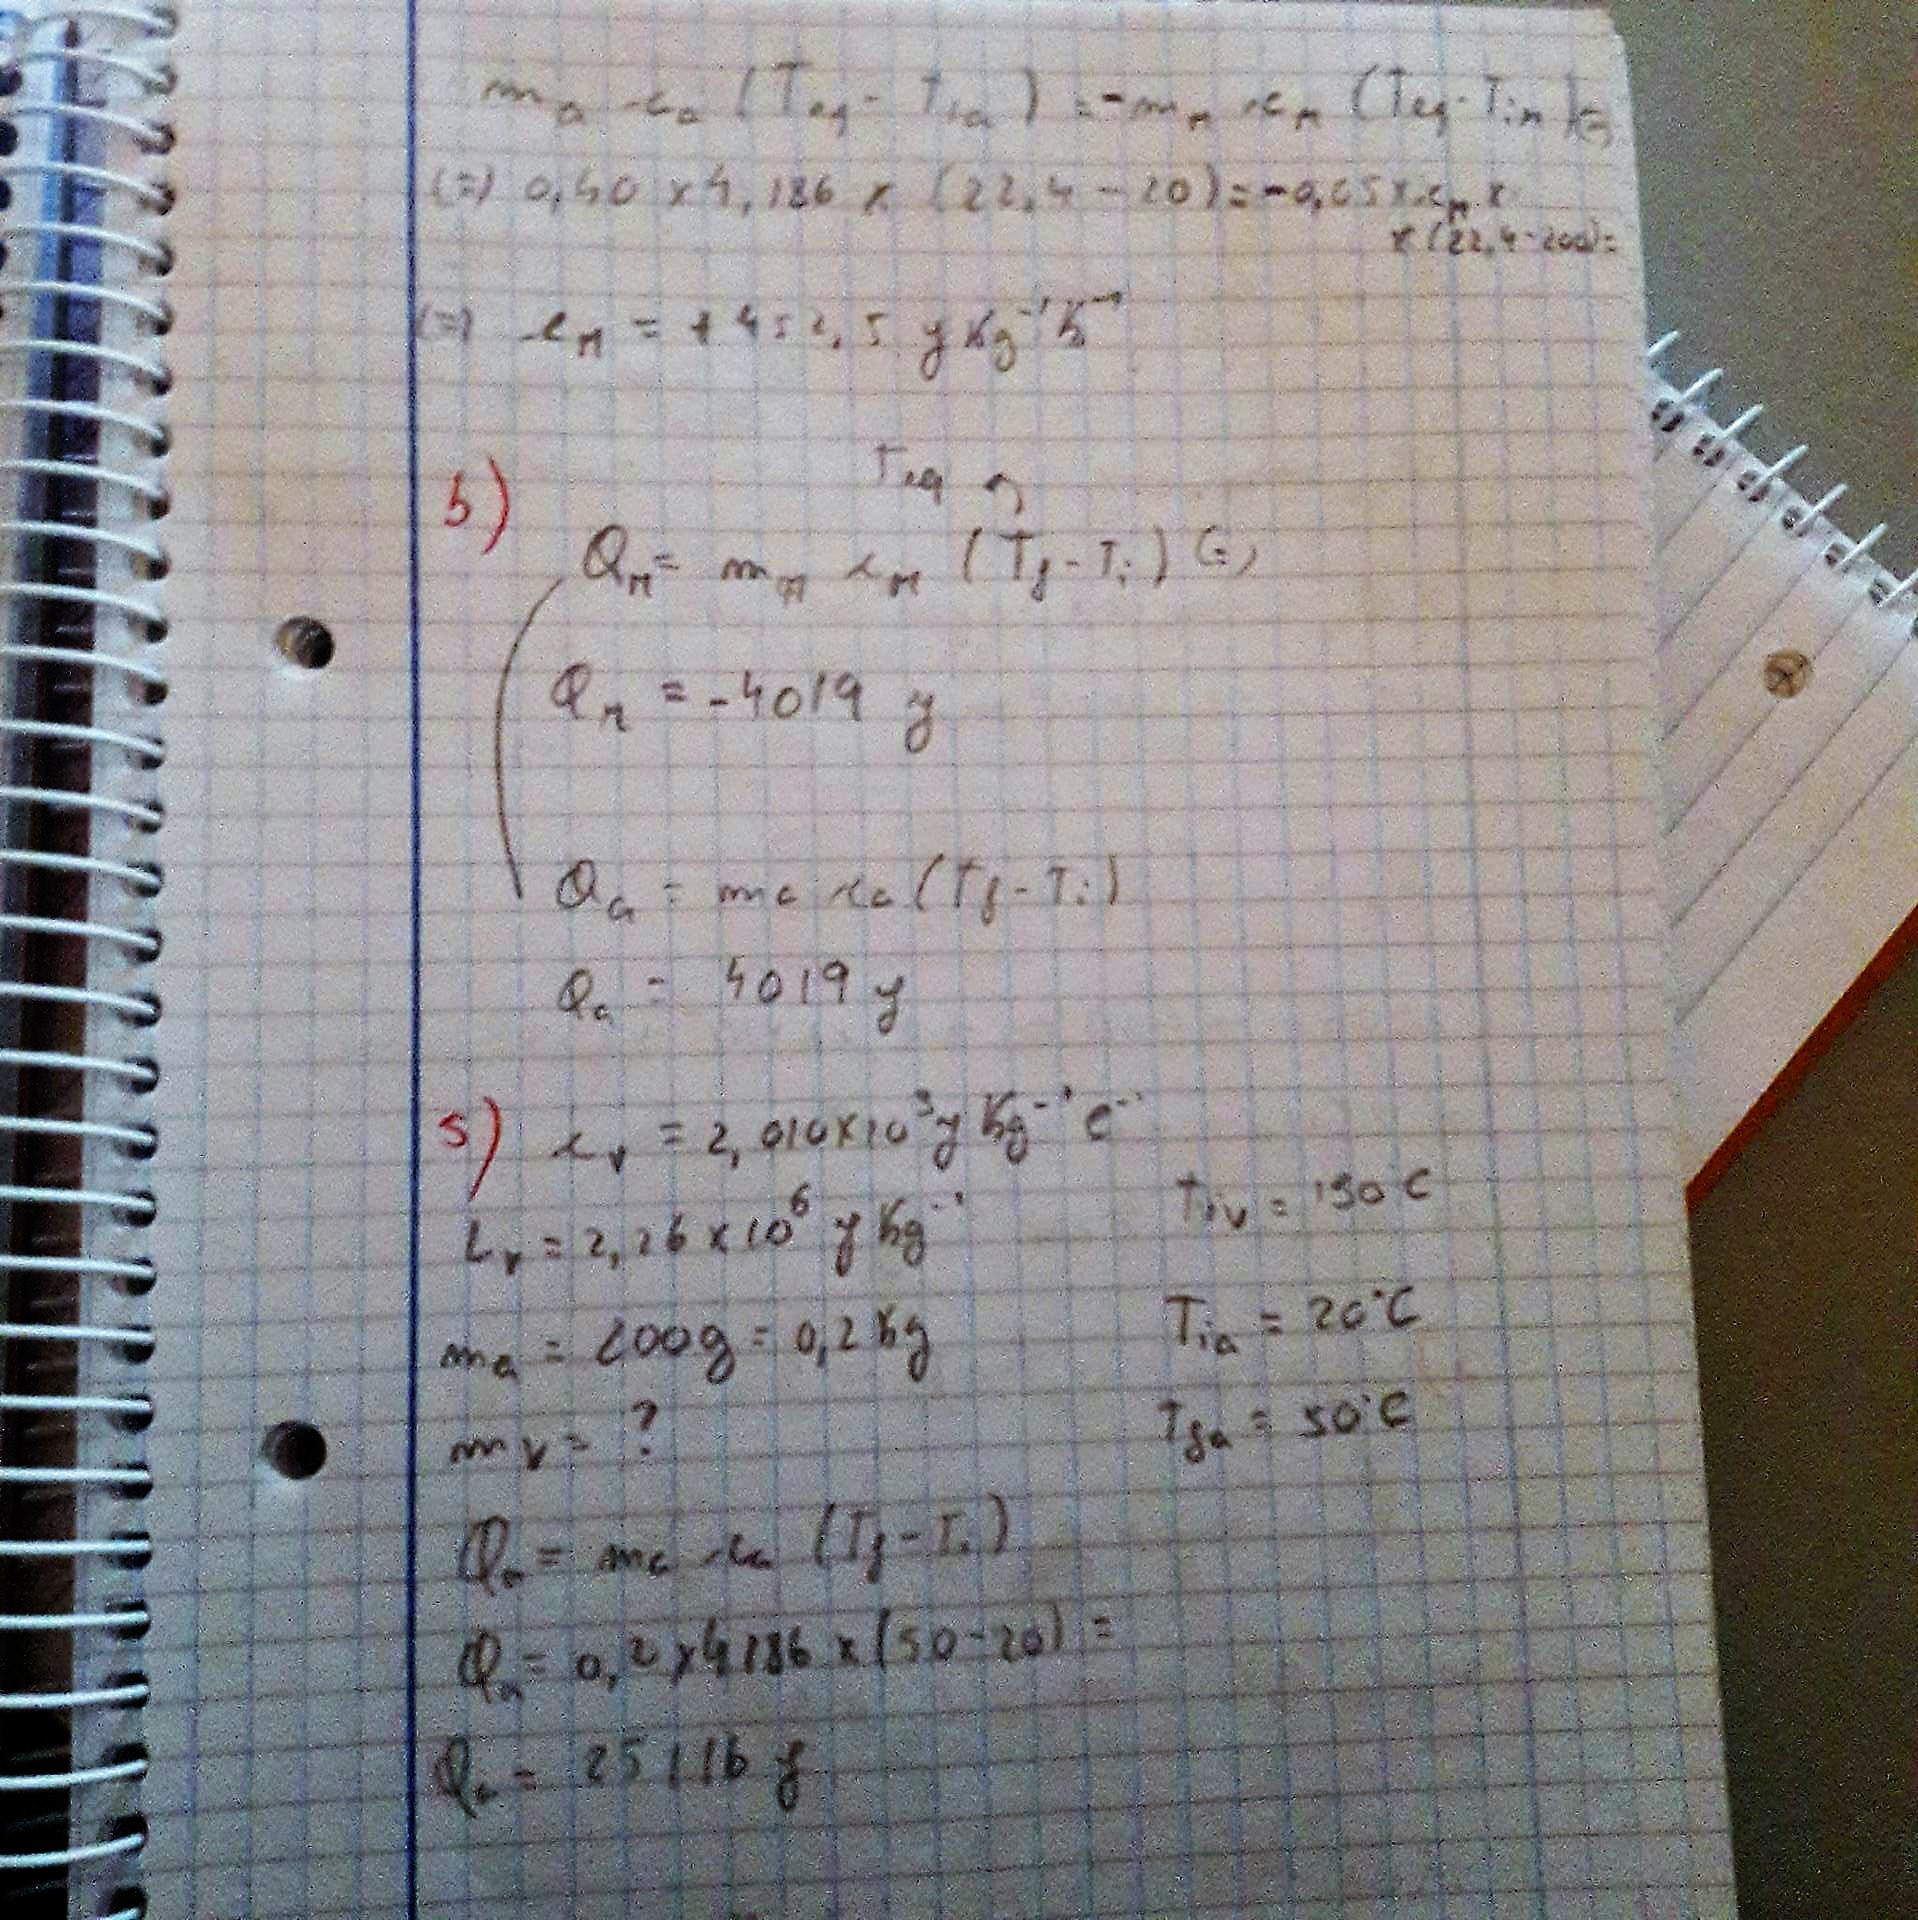 m_a c_a (T_eq - T_ia) = -m_M c_M (T_eq - T_iM) (=)
(=) 0,40 x 4,186 x (22,4 - 20) = -0,05 x c_M x
x (22,4 - 200) =
(=) c_M = +452,5 J Kg⁻¹ K⁻¹
T_eq
b) Q_M = m_M c_M (T_f - T_i) (=)
Q_M = -4019 J
Q_a = m_a c_a (T_f - T_i)
Q_a = 4019 J
5) c_v = 2,010x10³ J Kg⁻¹ C⁻¹
L_v = 2,26 x 10⁶ J Kg⁻¹ T_iv = 130°C
m_a = 200g = 0,2 Kg T_ia = 20°C
m_v = ? T_fa = 50°C
Q_a = m_a c_a (T_f - T_i)
Q_a = 0,2 x 4186 x (50 - 20) =
Q_a = 25116 J